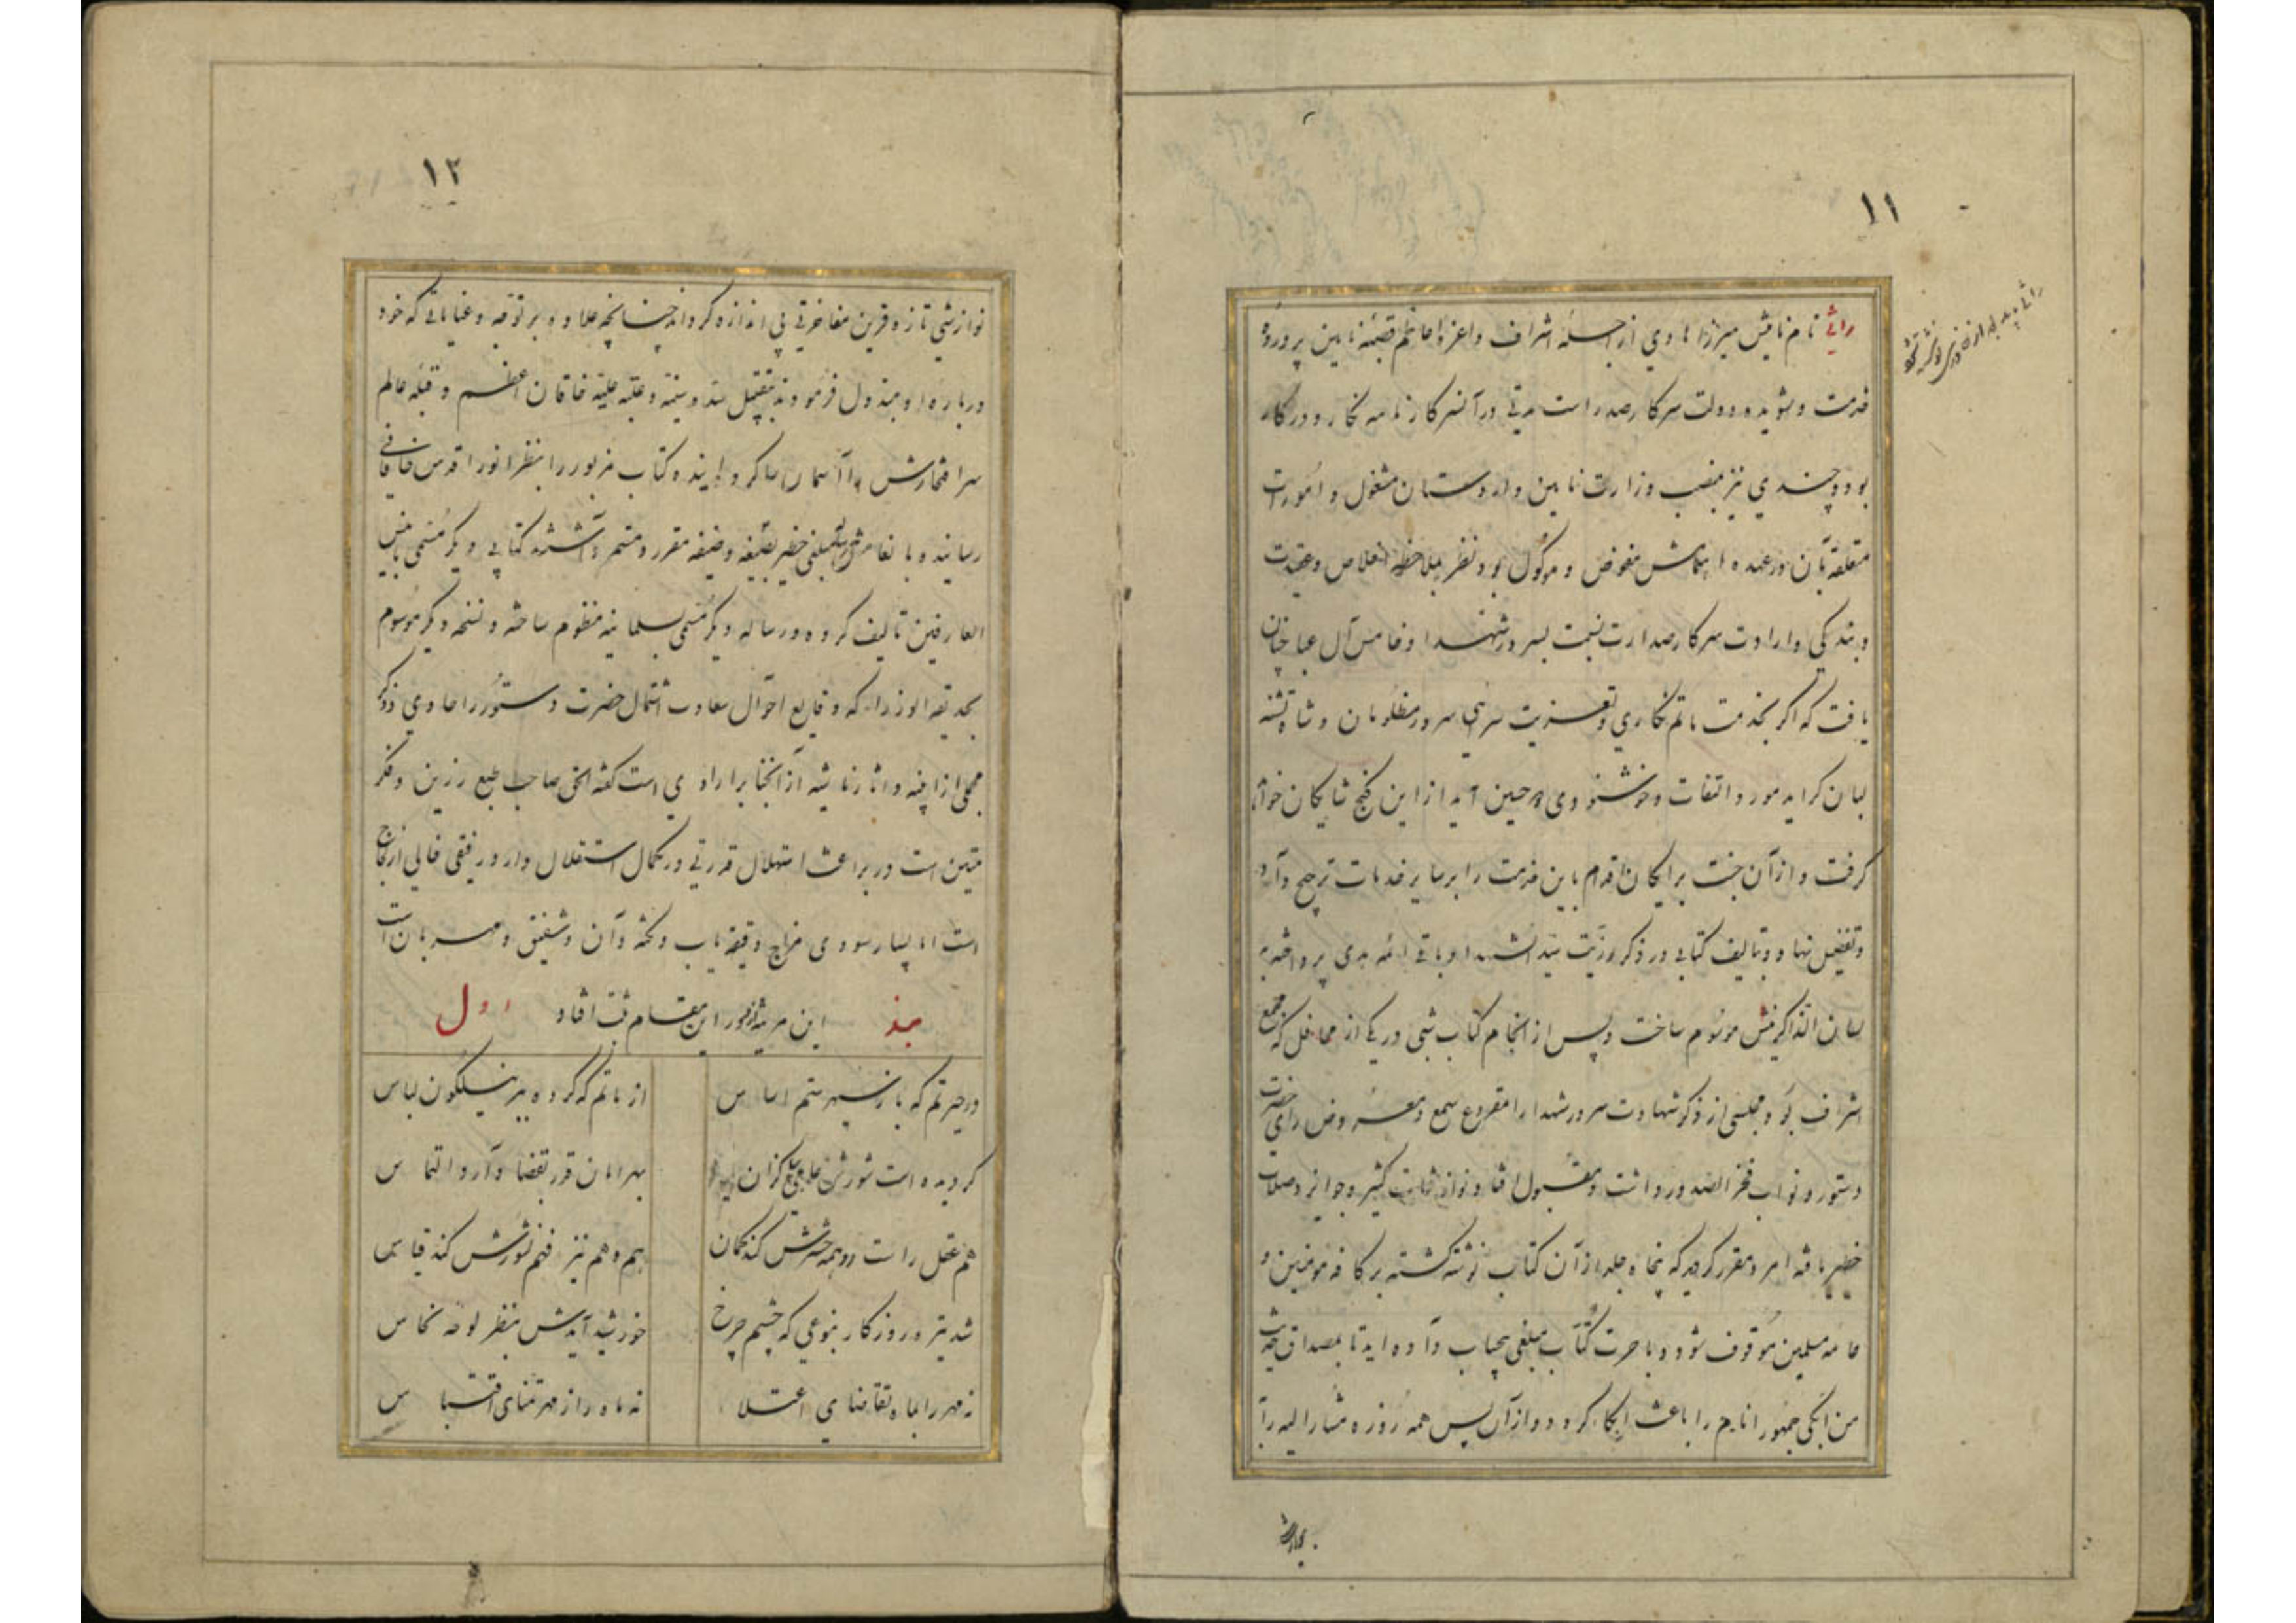 ۱۱
راثی نام نامیش میرزا هادی از اجلهٔ اشراف و اعزهٔ اعاظم قصبهٔ نایین پرورده
خدمت و پوییده دولت سرکار صدر است مدتی در آنسرکار نامه نکار و در کار
بود و چندی نیز بمنصب وزارت نایین و اردستان مشغول و امورات
متعلقه بآن در عهده اهتمامش مفوض و موکول بود نظر بملاحظه اخلاص و عقیدت
و بندکی و ارادت سرکار صدارت نسبت بسرور شهدا و خامس آل عبا چنان
یافت که اکر بخدمت ماتم نکاری و تعزیت سرایی سرور مظلومان و شاه تشنه
لبان کراید مورد التفات و خوشنودی آید از این کنج شایکان خواهد
کرفت و از آن جنت برایکان اقدام باین خدمت را بر سایر خدمات ترجیح داده
و تفضیل نهاد و بتالیف کتابی در ذکر رزیت سید الشهدا و باقی ائمه هدی پرداخته به
لسان الذاکرینش موسوم ساخت و پس از انجام کتاب شبی در یکی از محافل که مجمع
اشراف بود مجلسی از ذکر شهادت سرور شهدا را مقروع سمع و معروض رای حضرت
دستور و نواب فخر الصدور داشت و مقبول افتاد و نوازشات کثیر و جوایز و صلات
خطیر یافته امر و مقرر کردید که پنجاه جلد از آن کتاب نوشته کشته بر کافه مومنین و
عامه مسلمین موقوف شود و باجرت کتاب مبلغی بیحساب داده اید تا بمصداق حدیث
من ابکی جمهور انام را باعث ابکاء کردد و از آن پس همه روزه مشارالیه را
بنوازش
۱۲
نوازشی تازه و قرین مفاخرتی بی اندازه کرداند چنانچه علاوه بر توجه و عنایاتی که خود
درباره او مبذول فرمودند بتقبیل سده سنیه و عتبه علیه خاقان اعظم و قبله عالم
سر افتخارش را آسمان سا کردانیده و کتاب مزبور را بنظر انور اقدس خاقانی
رسانیده بانعام مبلغی خطیر وظیفه مقرر و مستمر داشتند کتابی دیکر مسمی بانیس
العارفین تالیف کرده و رساله دیکر مسمی بسلمانیه منظوم ساخته و نسخه دیکر موسوم
بحدیقه الوزراء که وقایع احوال سعادت اشتمال حضرت دستور را حاوی و ذکر
مجملی از ابنیه و اثار ناشیه از آنجناب را راوی است کفته الحق صاحب طبع رزین و فکر
متین است در براعت استهلال قدرتی در کمال استقلال دارد رفیقی خالی از نفاق
است اما بسیار سودی مزاج دقیقه یاب و نکته دان و شفیق و مهربان است
بند این مرثیه در این مقام ثبت افتاد اول
در حیرتم که باز سپهر ستم اساس از ماتم که کرده ببر نیلکون لباس
کردیده است شورش عامی بپا کزان بهر امان قدر بقضا دارد التماس
هم عقل راست واهمه شورش کند کمان هم وهم نیز فهم نشورش کند قیاس
شد تیره روزکار بنوعی که چشم چرخ خورشید آیدش بنظر لوحه نحاس
نه مهر را بماه تقاضای اعتلا نه ماه را ز مهر تمنای اقتباس